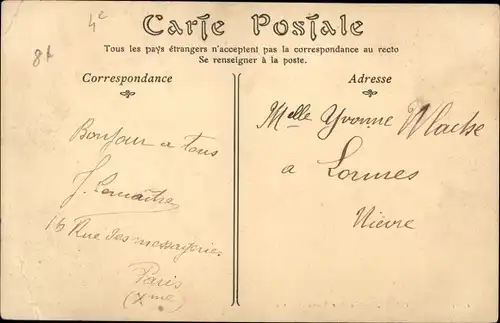 4e
Carte Postale
8t
Tous les pays étrangers n'acceptent pas la correspondance au recto
Se renseigner à la poste.
Correspondance
Adresse
Bonjour a tous
J. Lemaitre
16 Rue des messageries
Paris
(Xme)
Melle Yvonne
a Lormes
Nièvre